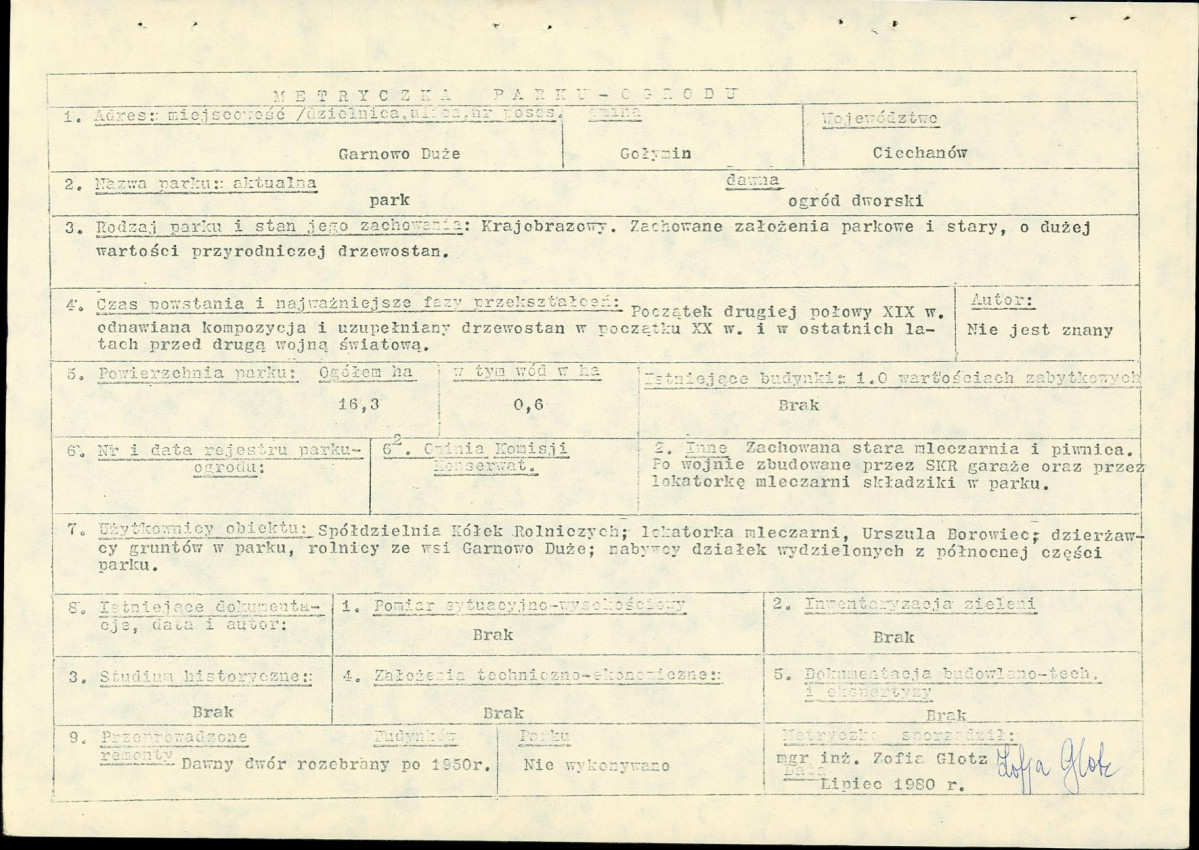 METRYCZKA PARKU-OGRODU
1. Adres: miejscowość /dzielnica,ulica,nr poses. gmina Województwo
Garnowo Duże Gołymin Ciechanów
2. Nazwa parku: aktualna dawna
park ogród dworski
3. Rodzaj parku i stan jego zachowania: Krajobrazowy. Zachowane założenia parkowe i stary, o dużej
wartości przyrodniczej drzewostan.
4. Czas powstania i najważniejsze fazy przekształceń: Początek drugiej połowy XIX w.
odnawiana kompozycja i uzupełniany drzewostan w początku XX w. i w ostatnich la-
tach przed drugą wojną światową.
Autor:
Nie jest znany
5. Powierzchnia parku: Ogółem ha w tym wód w ha Istniejące budynki: 1.O wartościach zabytkowych
16,3 0,6 Brak
6. Nr i data rejestru parku-
ogrodu:
6². Opinia Komisji
Konserwat.
2. Inne Zachowana stara mleczarnia i piwnica.
Po wojnie zbudowane przez SKR garaże oraz przez
lokatorkę mleczarni składziki w parku.
7. Użytkownicy obiektu: Spółdzielnia Kółek Rolniczych; lokatorka mleczarni, Urszula Borowiec; dzierżaw-
cy gruntów w parku, rolnicy ze wsi Garnowo Duże; nabywcy działek wydzielonych z północnej części
parku.
8. Istniejące dokumenta-
cje, data i autor:
1. Pomiar sytuacyjno-wysokościowy
Brak
2. Inwentaryzacja zieleni
Brak
3. Studium historyczne:
Brak
4. Założenia techniczno-ekonomiczne:
Brak
5. Dokumentacja budowlano-tech.
i ekspertyzy
Brak
9. Przeprowadzone Budynków Parku
remonty Dawny dwór rozebrany po 1950r. Nie wykonywano
Metryczkę sporządził:
mgr inż. Zofia Glotz Zofja Glotz
Data
Lipiec 1980 r.